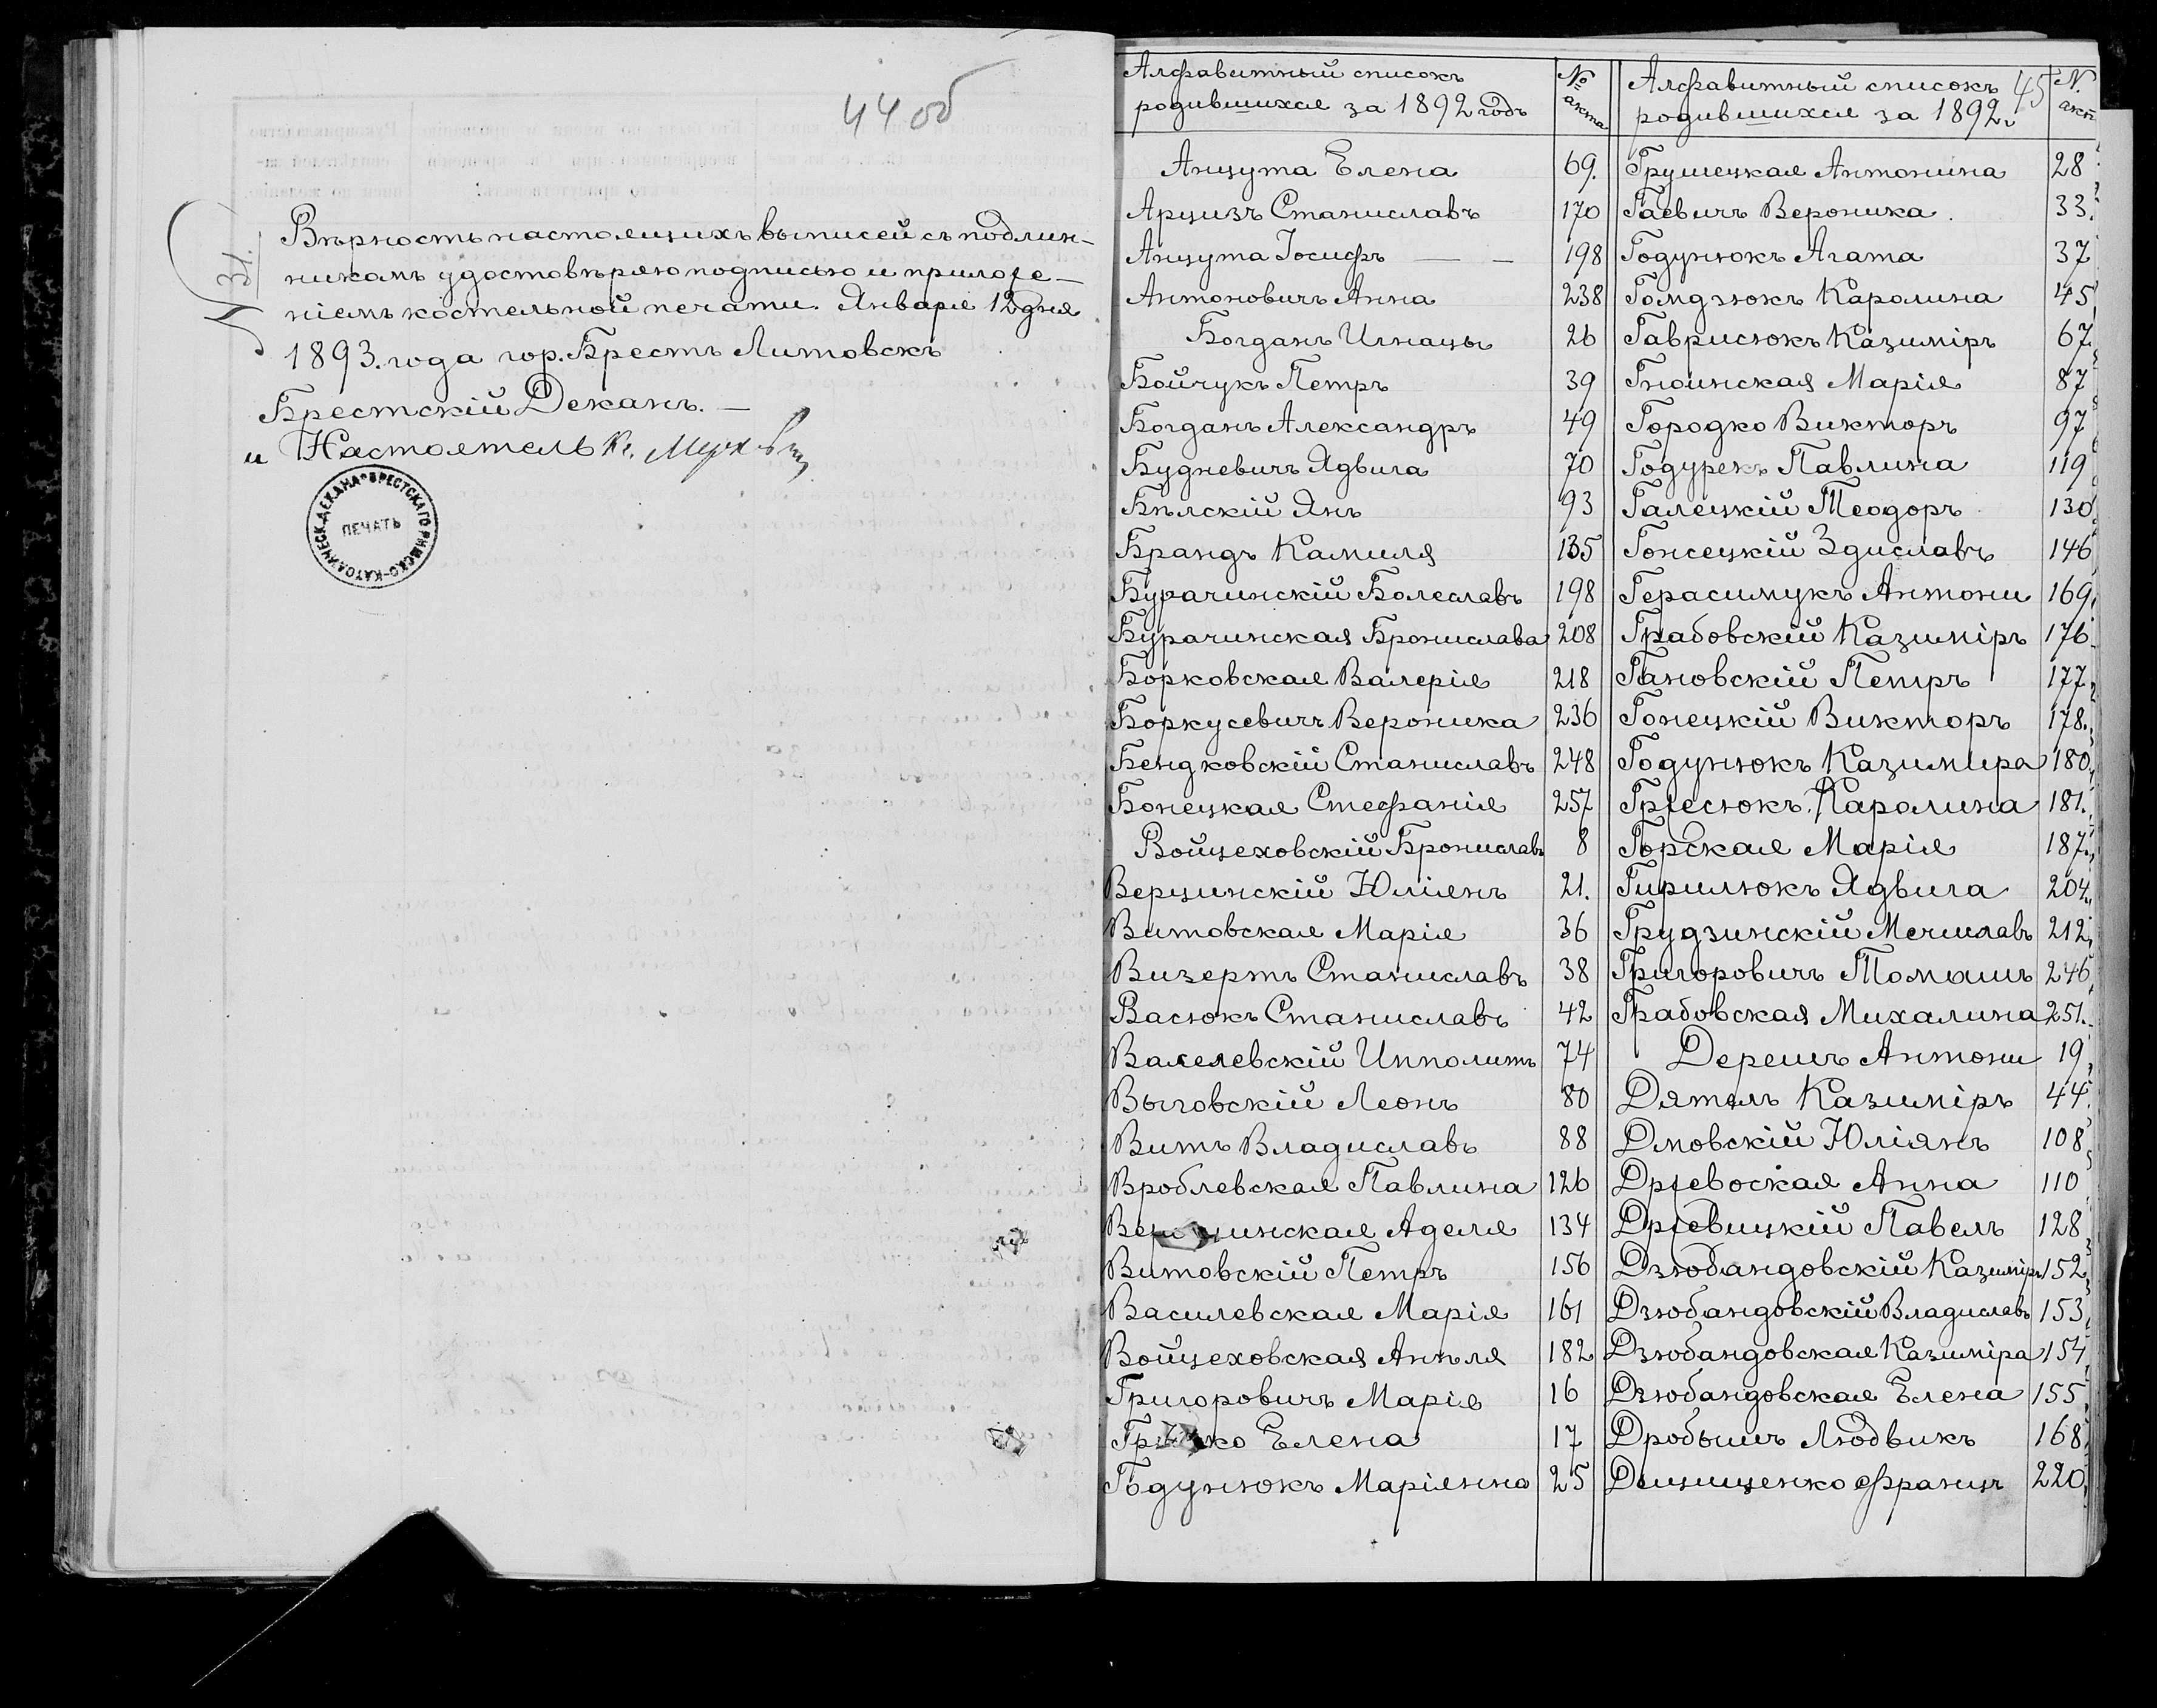 44 об
№ 31.
Вѣрность настоящихъ выписей съ подлин-
никамъ удостовѣряю подписью и приложе-
ніемъ костельной печати. Января 12 дня
1893. года гор. Брестъ Литовскъ
Брестскій Деканъ. —
и Настоятель Кс.
ПЕЧАТЬ
БРЕСТСКАГО РИМСКО-КАТОЛИЧЕСК. ДЕКАНА
Алфавитный списокъ
родившихся за 1892 годъ
№ акта
Анцута Елена 69.
Арцизъ Станиславъ 170
Анцута Іосифъ — — 198
Антоновичъ Анна 238
Богданъ Игнацы 26
Бойчукъ Петръ 39
Богданъ Александръ 49
Будневичъ Ядвига 70
Бѣлскій Янъ 93
Брандъ Камиля 135
Бурачинскій Болеславъ 198
Бурачинская Брониславa 208
Борковская Валерія 218
Боркусевичъ Вероника 236
Бендковскій Станиславъ 248
Бонецкая Стефанія 257
Войцеховскій Брониславъ 8
Верцинскій Юліянъ 21.
Витовская Марія 36
Визертъ Станиславъ 38
Васюкъ Станиславъ 42
Вакелевскій Ипполитъ 74
Выговскій Леонъ 80
Витъ Владиславъ 88
Вроблевская Павлина 126
Аделя 134
Витовскій Петръ 156
Василевская Марія 161
Войцеховская Анѣля 182
Григоровичъ Марія 16
Елена 17
Годунюкъ Маріянна 25
Алфавитный списокъ 45
родившихся за 1892 г
N. акт
Грушецкая Антонина 28
Гаевичъ Вероника. 33.
Годунюкъ Агата 37
Гомдзюкъ Каролина 45
Гаврисюкъ Казиміръ 67.
Гноинская Марія 87
Городко Викторъ 97
Годурекъ Павлина 119
Галецкій Теодоръ 130
Гонсецкій Здиславъ 146
Герасимукъ Антони 169.
Грабовскій Казиміръ 176
Гановскій Петръ 177
Гонецкій Викторъ 178.
Годунюкъ Казимира 180
Гржесюкъ Каролина 181.
Горская Марія 187.
Гирилюкъ Ядвига 204.
Грудзинскій Мечиславъ 212
Григоровичъ Томашъ 246
Грабовская Михалина 251.
Дерешъ Антони 19
Дятелъ Казиміръ 44.
Дмовскій Юліянъ 108
Држевоская Анна 110
Држевицкій Павелъ 128
Дзюбандовскій Казиміръ 152
Дзюбандовскій Владиславъ 153
Дзюбандовская Казиміра 154
Дзюбандовская Елена 155
Дробышъ Людвикъ 168
Дицищенко Францъ 220